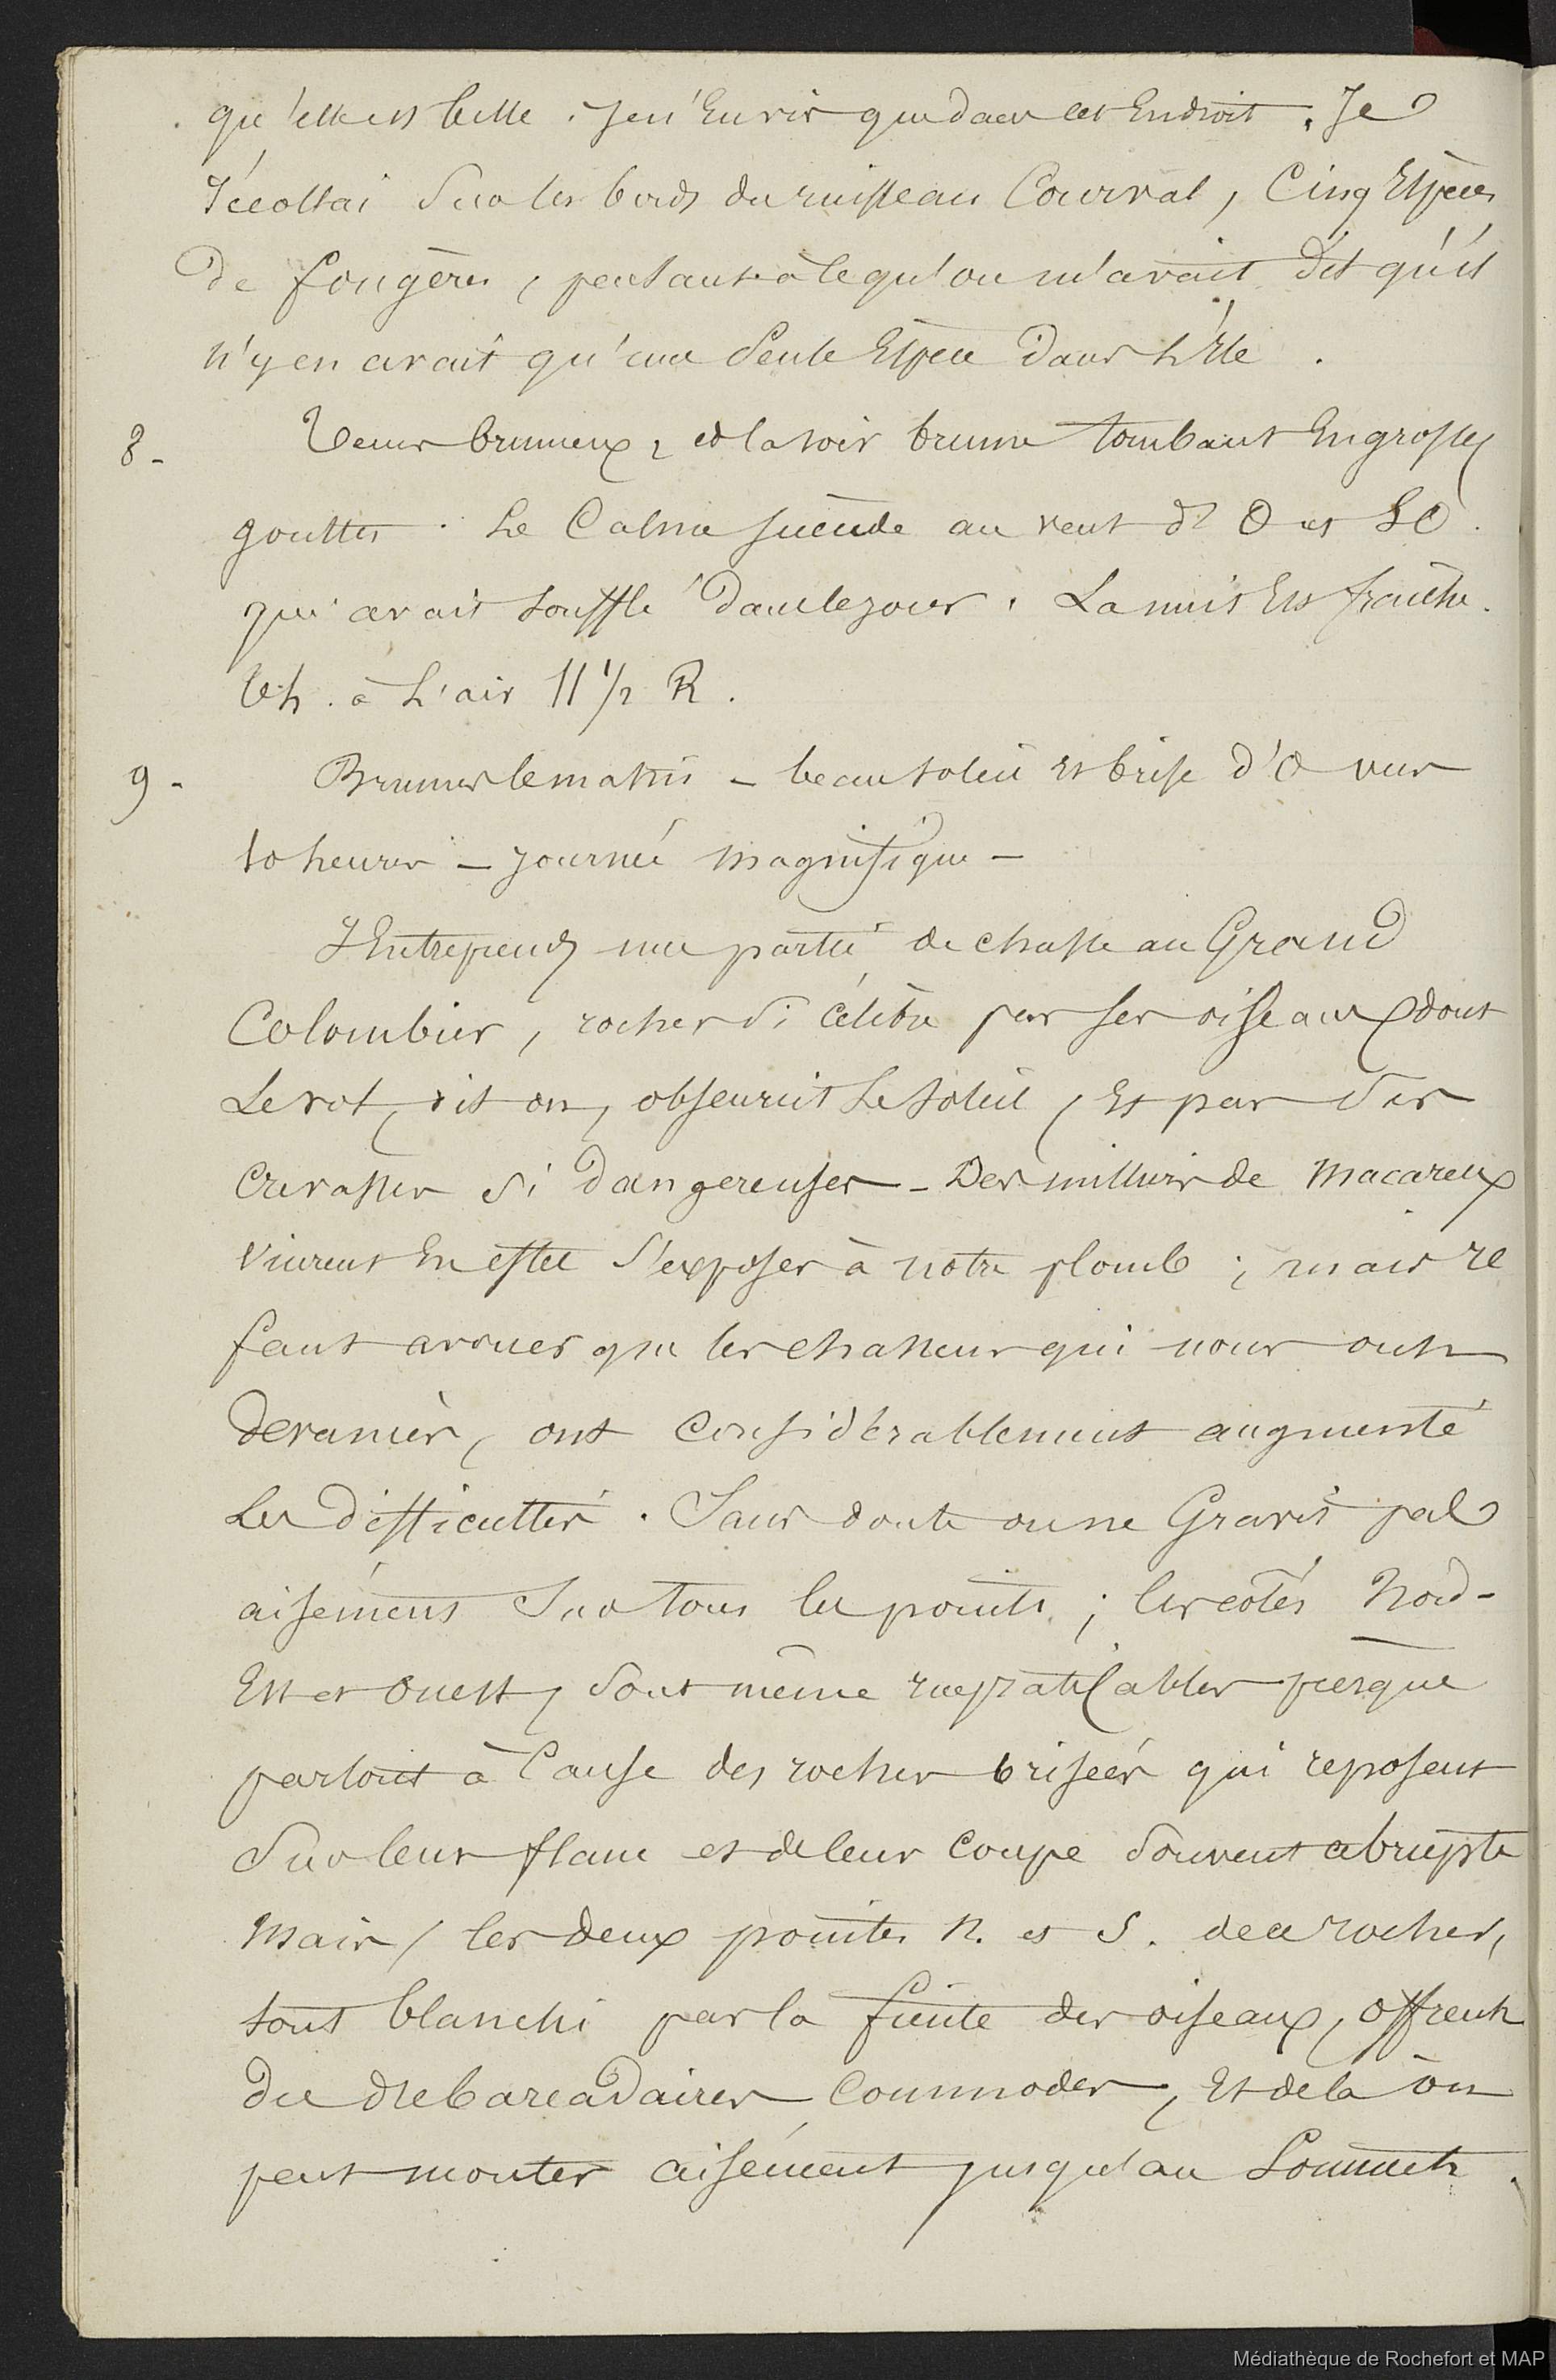 qu'elle est belle. Je n'en vis que dans cet Endroit. Je
récoltai sur les bords du ruisseau Courval, Cinq Espèces
de fougères, pensant à ce qu'on m'avait dit qu'il
n'y en avait qu'une seule Espèce dans L'île.
8 - Tems brumeux, et la soir brume tombant En grosses
gouttes. Le Calme succède au vent d'O et SO.
qui avait soufflé dans le jour. La nuit Est fraîche.
th. à L'air 11 1/2 R.
9 - Brumes le matin - beau soleil Et brise d'O vers
10 heures - journée magnifique -
J'Entreprends une partie de chasse au Grand
Colombier, rocher si célèbre par ses oiseaux dont
Le vol, dit on, obscurcit Le soleil, Et par ses
Crevasses si dangereuses - Des milliers de Macareux
vinrent En effet s'exposer à notre plomb ; mais il
faut avouer que les chasseurs qui nous ont
devancés, ont considérablement augmenté
Les difficultés. Sans doute on ne Gravit pas
aisément sur tous les points ; les côtés Nord-
Est et Ouest, sont même impraticables presque
partout à Cause des rocher brisées qui reposent
sur leur flanc et de leur Coupe souvent abrupte
Mais, les deux pointes N. et S. de ce rocher,
tout blanchi par la fiente des oiseaux, offrent
des debarcadaires Commodes, Et de là on
peut monter aisément jusqu'au Sommet.
Médiathèque de Rochefort et MAP